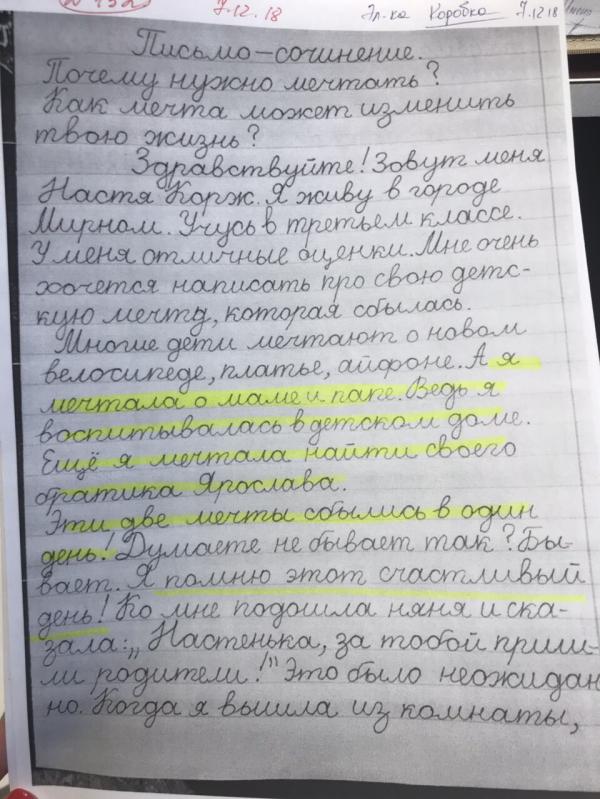 № 152
7.12.18
Эл.ка Коробка 7.12.18
Письмо-сочинение.
Почему нужно мечтать?
Как мечта может изменить
твою жизнь?
Здравствуйте! Зовут меня
Настя Корж. Я живу в городе
Мирном. Учусь в третьем классе.
У меня отличные оценки. Мне очень
хочется написать про свою детс-
кую мечту, которая сбылась.
Многие дети мечтают о новом
велосипеде, платье, айфоне. А я
мечтала о маме и папе. Ведь я
воспитывалась в детском доме.
Ещё я мечтала найти своего
братика Ярослава.
Эти две мечты сбылись в один
день! Думаете не бывает так? Бы-
вает. Я помню этот счастливый
день! Ко мне подошла няня и ска-
зала: „Настенька, за тобой приш-
ли родители!" Это было неожидан
но. Когда я вышла из комнаты,